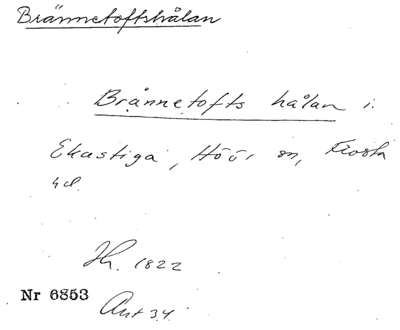 Brännetoftshålan
Brännetofts hålan i
Ekastiga, Höör sn, Frosta
hd.
Hr. 1822
Nr 6853
Ant 34